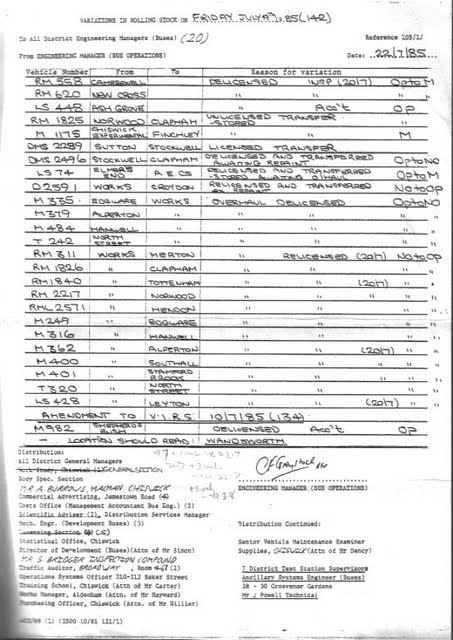 VARIATIONS IN ROLLING STOCK ON FRIDAY JULY 19TH, 85 (142)
To All District Engineering Managers (Buses) (20) Reference 103/1/
From ENGINEERING MANAGER (BUS OPERATIONS) Date: 22/7/85
Vehicle Number From To Reason for variation
RM 558 CAMBERWELL DELICENSED INSP (2017) Op to M
RM 620 NEW CROSS " " "
LS 448 ASH GROVE " Acc't OP
RM 1825 NORWOOD CLAPHAM UNLICENSED TRANSFER - STORED "
M 1175 CHISWICK EXPERIMENTAL FINCHLEY " " M
DMS 2289 SUTTON STOCKWELL LICENSED TRANSFER
DMS 2496 STOCKWELL CLAPHAM DELICENSED AND TRANSFERRED AWAITING REPAINT Op to NO
LS 74 ELMERS END A.E.C5 DELICENSED AND TRANSFERRED - STORED AWAITING O/HAUL Op to M
D2591 WORKS CROYDON RELICENSED AND TRANSFERRED EX REPAINT No to OP
M 335 EDGWARE WORKS OVERHAUL DELICENSED Op to NO
M 379 ALPERTON " " " "
M 484 HANWELL " " " "
T 242 NORTH STREET " " " "
RM 311 WORKS MERTON " RELICENSED (2017) No to OP
RM 1826 " CLAPHAM " " "
RM 1840 " TOTTENHAM " " (2017) "
RM 2217 " NORWOOD " " "
RML 2571 " HENDON " " "
M 249 " EDGWARE " " "
M 316 " HANWELL " " "
M 362 " ALPERTON " " (2017) "
M 400 " SOUTHALL " " "
M 401 " STAMFORD BROOK " " "
T 320 " NORTH STREET " " "
LS 428 " LEYTON " " (2017) "
AMENDMENT TO V.I.R.S 10/7/85 (134)
M 982 SHEPHERDS BUSH DELICENSED Acc't OP
- LOCATION SHOULD READ: WANDSWORTH
Distribution:
All District General Managers
Work Study, Chiswick (2) GENERAL SECTION
Body Spec. Section
MR A BURROWS, MACMAN CHISWICK ENGINEERING MANAGER (BUS OPERATIONS)
Commercial Advertising, Jamestown Road (4)
Costs Office (Management Accountant Bus Eng.) (2)
Scientific Adviser (2), Distribution Services Manager
Mech. Engr. (Development Buses) (3) Distribution Continued:
Licensing Section
Statistical Office, Chiswick Senior Vehicle Maintenance Examiner
Director of Development (Buses)(Attn of Mr Simon) Supplies, CHISWICK (Attn of Mr Dancy)
MR S BRIDGER INSPECTION COMPOUND
Traffic Auditor, BROADWAY, Room 467 (2) 7 District Test Station Supervisors
Operations Systems Officer 210-212 Baker Street Ancillary Systems Engineer (Buses)
Training School, Chiswick (Attn of Mr Carter) 28 - 30 Grosvenor Gardens
Works Manager, Aldenham (Attn of Mr Hayward) Mr J Powell Technical
Purchasing Officer, Chiswick (Attn of Mr Hillier)
(1) (2500 10/81 121/1)